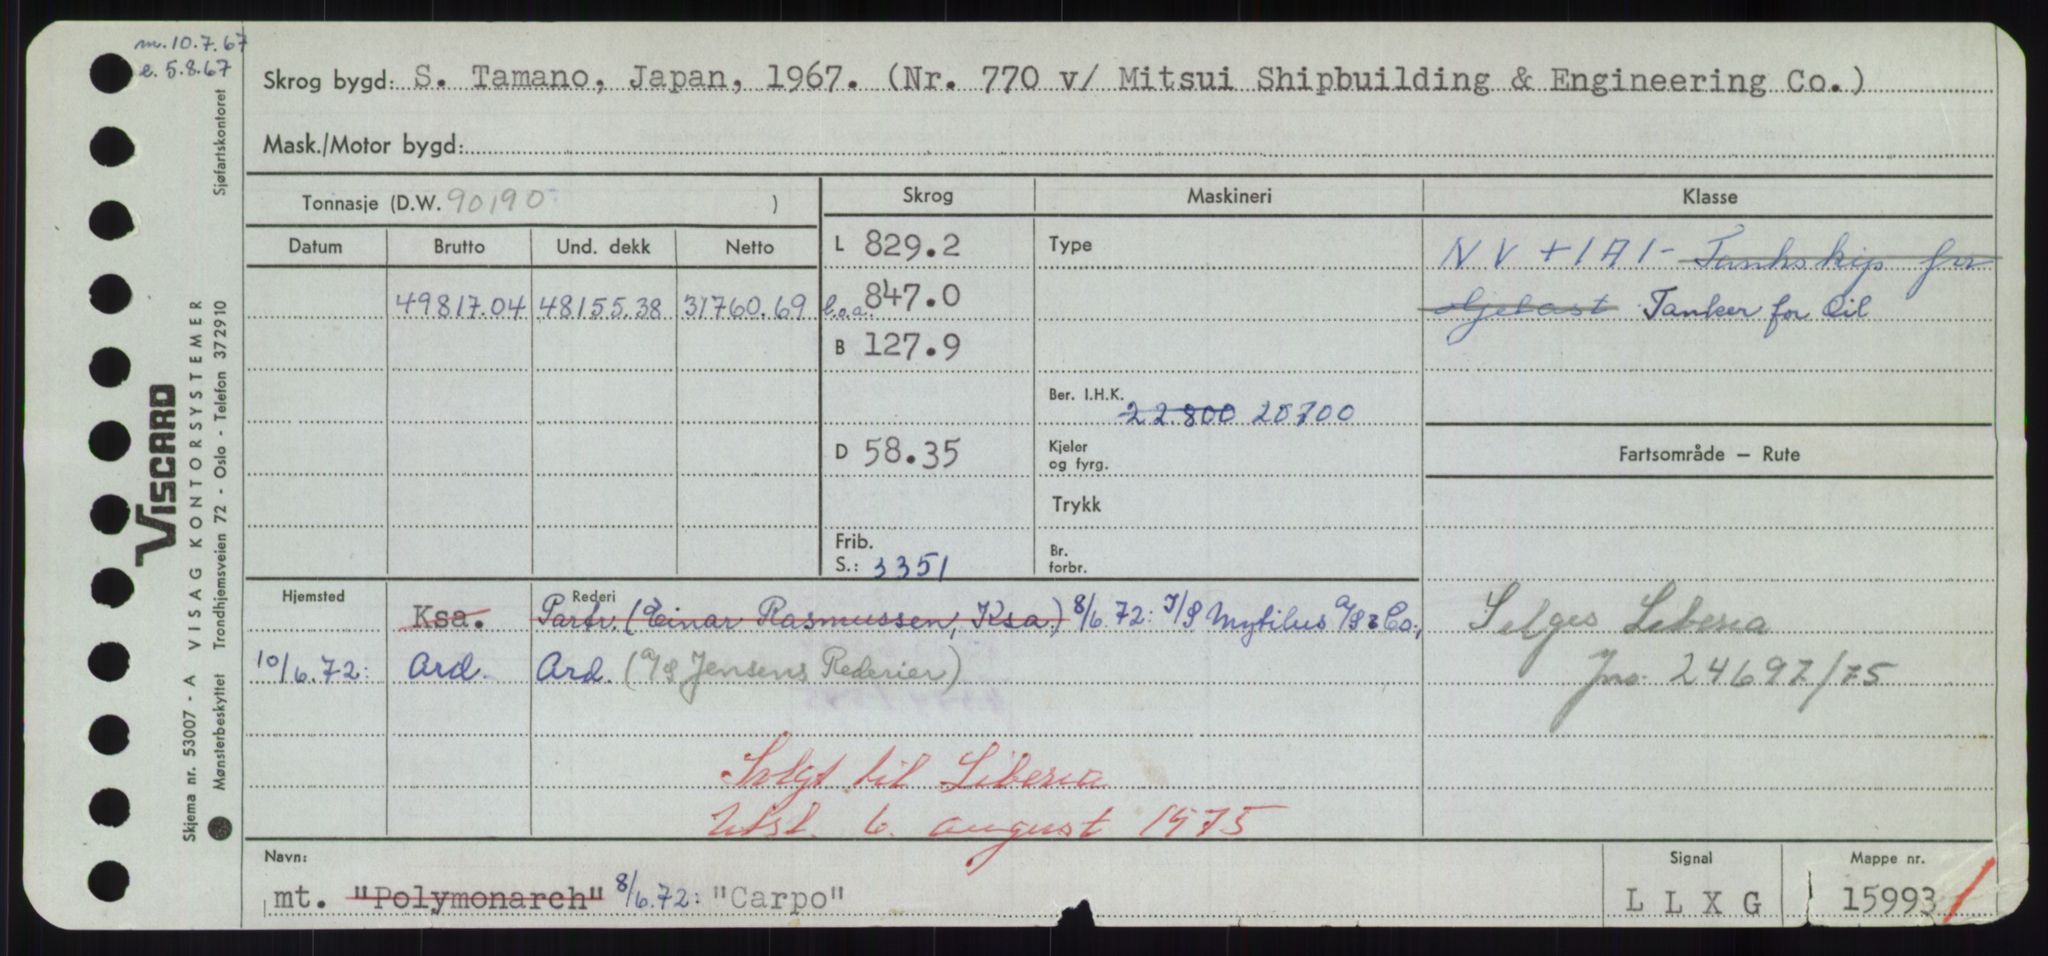 m. 10.7.67
e. 5.8.67
Skrog bygd: S. Tamano, Japan, 1967. (Nr. 770 v/ Mitsui Shipbuilding & Engineering Co.)
Mask./Motor bygd:
Tonnasje (D.W. 90190 )
Skrog
Maskineri
Klasse
Datum
Brutto
Und. dekk
Netto
49817.04
48155.38
31760.69
L 829.2
l.o.a. 847.0
B 127.9
D 58.35
Frib.
S.: 3351
Type
Ber. I.H.K.
22.800 20700
Kjeler
og fyrg.
Trykk
Br.
forbr.
NV +1A1- Tankskip for
Oljelast Tanker for Oil
Fartsområde – Rute
Selges Liberia
Jno. 24697/75
Hjemsted
Rederi
Ksa. Partr. (Einar Rasmussen, Ksa.) 8/6.72: I/S Mytilus A/S & Co.,
10/6.72: Ard. Ard. (A/S Jensens Rederier)
Solgt til Liberia
Utsl. 6. august 1975
Navn:
mt. "Polymonarch" 8/6.72: "Carpo"
Signal
L L X G
Mappe nr.
15993
VISCARD
Skjema nr. 53007 - A VISAG KONTORSYSTEMER
Mønsterbeskyttet Trondhjemsveien 72 - Oslo - Telefon 37 29 10
Sjøfartskontoret